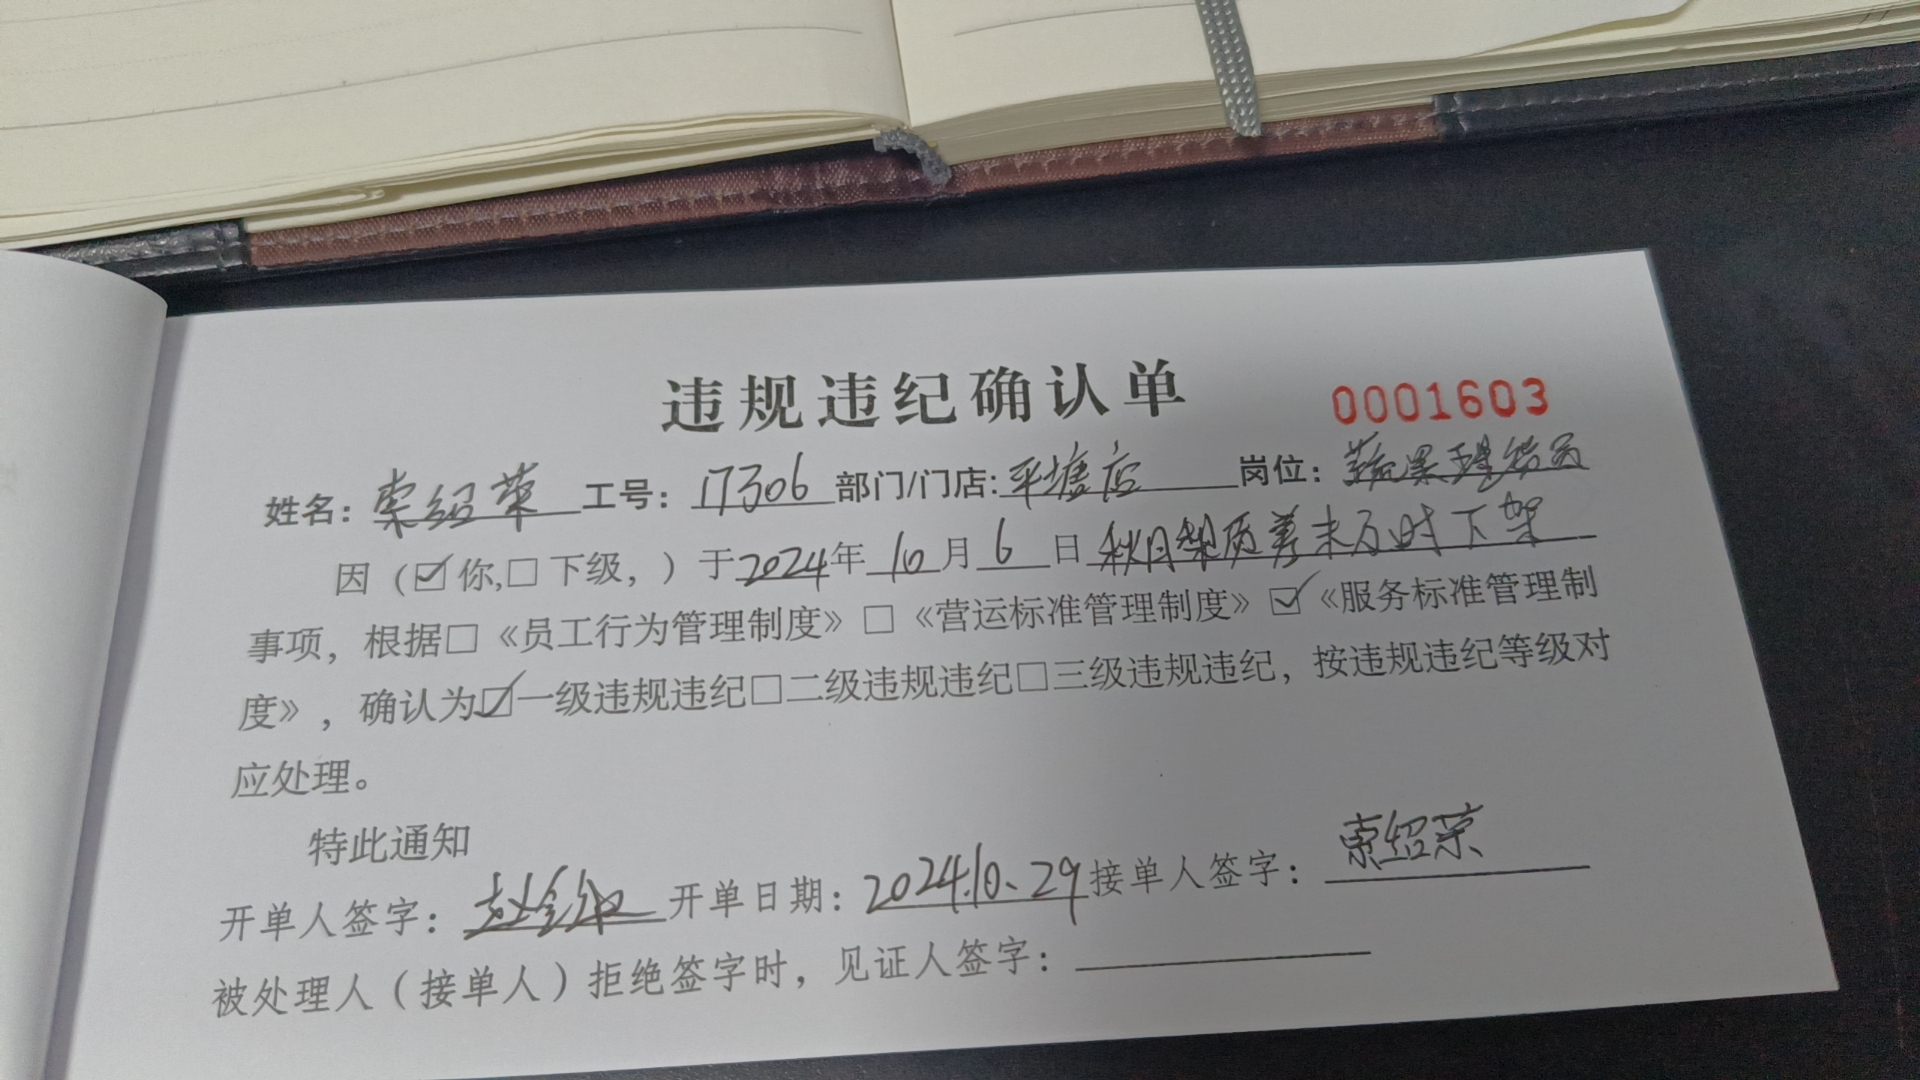 违规违纪确认单 0001603
姓名：索绍荣 工号：17306 部门/门店：平塘店 岗位：蔬果理货员
因（☑你,□下级，）于2024年10月6日秋月梨质差未及时下架
事项，根据□《员工行为管理制度》□《营运标准管理制度》☑《服务标准管理制
度》，确认为☑一级违规违纪□二级违规违纪□三级违规违纪，按违规违纪等级对
应处理。
特此通知
开单人签字： 开单日期：2024.10.29 接单人签字：索绍荣
被处理人（接单人）拒绝签字时，见证人签字：